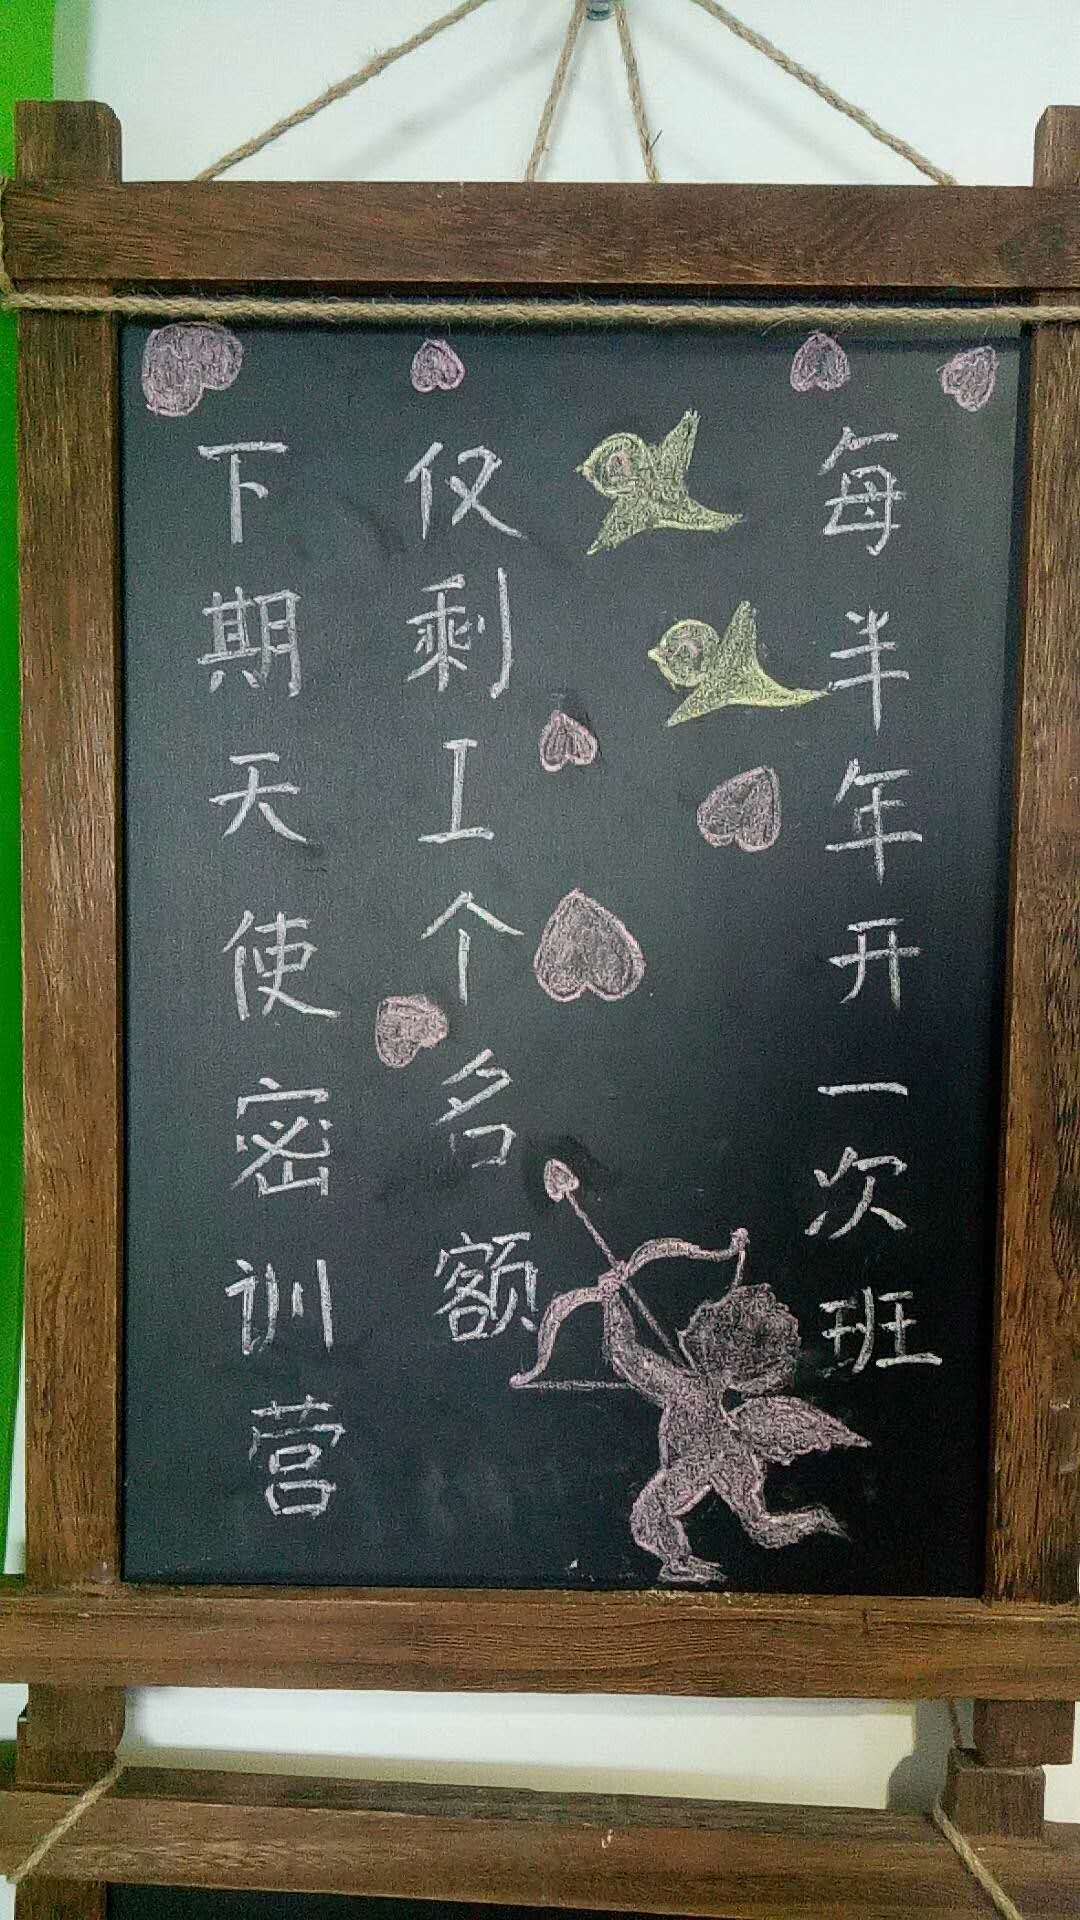 下期天使密训营
仅剩工个名额
每半年开一次班